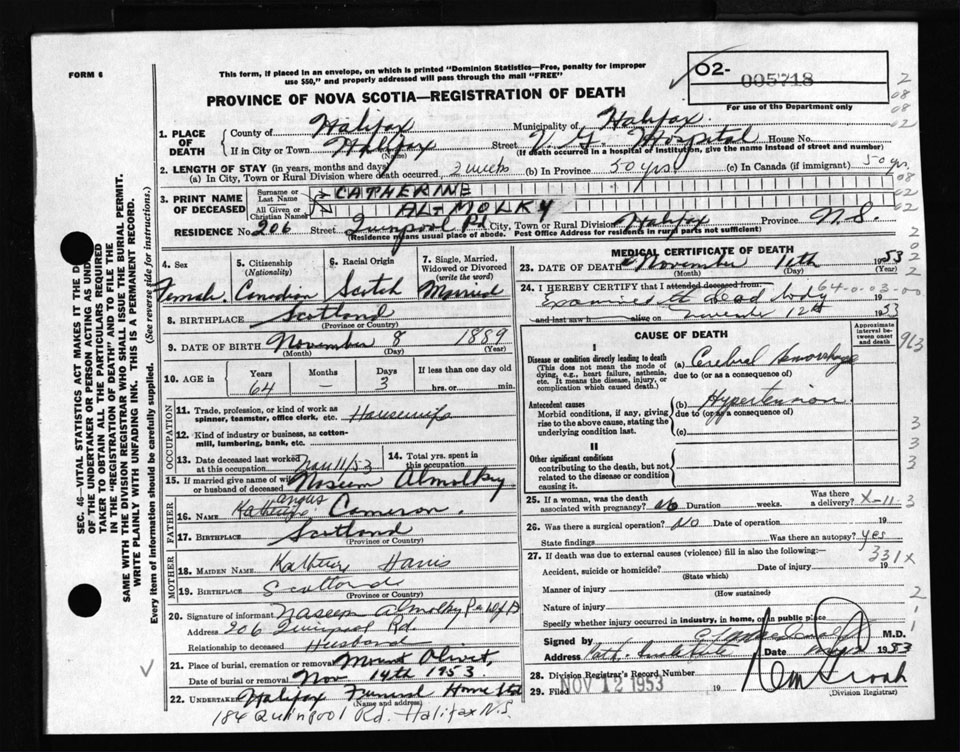 FORM 6
This form, if placed in an envelope, on which is printed "Dominion Statistics—Free, penalty for improper
use $50," and properly addressed will pass through the mail "FREE"
O2- 005718
For use of the Department only
PROVINCE OF NOVA SCOTIA—REGISTRATION OF DEATH
SEC. 46—VITAL STATISTICS ACT MAKES IT THE
OF THE UNDERTAKER OR PERSON ACTING AS
TAKER TO OBTAIN ALL THE PARTICULARS REQUIRED
IN THE "REGISTRATION OF DEATH" AND TO FILE THE
SAME WITH THE DIVISION REGISTRAR WHO SHALL ISSUE THE BURIAL PERMIT.
WRITE PLAINLY WITH UNFADING INK. THIS IS A PERMANENT RECORD.
Every item of information should be carefully supplied. (See reverse side for instructions.)
1. PLACE OF DEATH
County of Halifax Municipality of Halifax
If in City or Town Halifax Street V. G. Hospital House No.
(Name) (If death occurred in a hospital or institution, give the name instead of street and number)
2. LENGTH OF STAY (in years, months and days)
(a) In City, Town or Rural Division where death occurred 2 weeks (b) In Province 50 yrs (c) In Canada (if immigrant) 50 yrs
3. PRINT NAME OF DECEASED
Surname or Last Name CATHERINE
All Given or Christian Names AL-MOLKY
RESIDENCE No. 206 Street Quinpool Rd City, Town or Rural Division Halifax Province N.S.
(Residence means usual place of abode. Post Office Address for residents in rural parts not sufficient)
4. Sex
Female
5. Citizenship (Nationality)
Canadian
6. Racial Origin
Scotch
7. Single, Married, Widowed or Divorced (write the word)
Married
8. BIRTHPLACE Scotland
(Province or Country)
9. DATE OF BIRTH November 8 1889
(Month) (Day) (Year)
10. AGE in Years Months Days If less than one day
64 — 3 hrs. or min.
OCCUPATION
11. Trade, profession, or kind of work as
spinner, teamster, office clerk, etc. Housewife
12. Kind of industry or business, as cotton-
mill, lumbering, bank, etc.
13. Date deceased last worked at this occupation Nov 11/53
14. Total yrs. spent in this occupation
15. If married give name of wife or husband of deceased Naseem Almolky
FATHER
16. Name Angus Cameron.
17. BIRTHPLACE Scotland
(Province or Country)
MOTHER
18. MAIDEN NAME
19. BIRTHPLACE
(Province or Country)
20. Signature of informant Naseem Almolky
Address 206 Quinpool Rd
Relationship to deceased Husband
21. Place of burial, cremation or removal Mount Olivet,
Date of burial or removal Nov 14th 1953.
22. UNDERTAKER Halifax Funeral Home Ltd
(Name and address)
184 Quinpool Rd. Halifax N.S.
MEDICAL CERTIFICATE OF DEATH
23. DATE OF DEATH November 11th 1953
(Month) (Day) (Year)
24. I HEREBY CERTIFY that I attended deceased from 64-0-03-00
Examined the dead body 19
and last saw h alive on November 12th 1953
CAUSE OF DEATH
Approximate interval between onset and death
I
Disease or condition directly leading to death
(This does not mean the mode of
dying, e.g., heart failure, asthenia,
etc. It means the disease, injury, or
complication which caused death.)
(a) Cerebral
due to (or as a consequence of)
Antecedent causes
Morbid conditions, if any, giving
rise to the above cause, stating the
underlying condition last.
(b) Hypertension
due to (or as a consequence of)
(c)
II
Other significant conditions
contributing to the death, but not
related to the disease or condition
causing it.
25. If a woman, was the death associated with pregnancy? No Duration weeks. Was there a delivery? X-11-3
26. Was there a surgical operation? NO Date of operation 19
State findings Was there an autopsy? yes
27. If death was due to external causes (violence) fill in also the following:— 331X
Accident, suicide or homicide? Date of injury 19
(State which)
Manner of injury
(How sustained)
Nature of injury
Specify whether injury occurred in industry, in home, or in public place
Signed by M.D.
Address Path. Institute Date 1953
28. Division Registrar's Record Number
29. Filed NOV 12 1953 19
(Division Registrar)